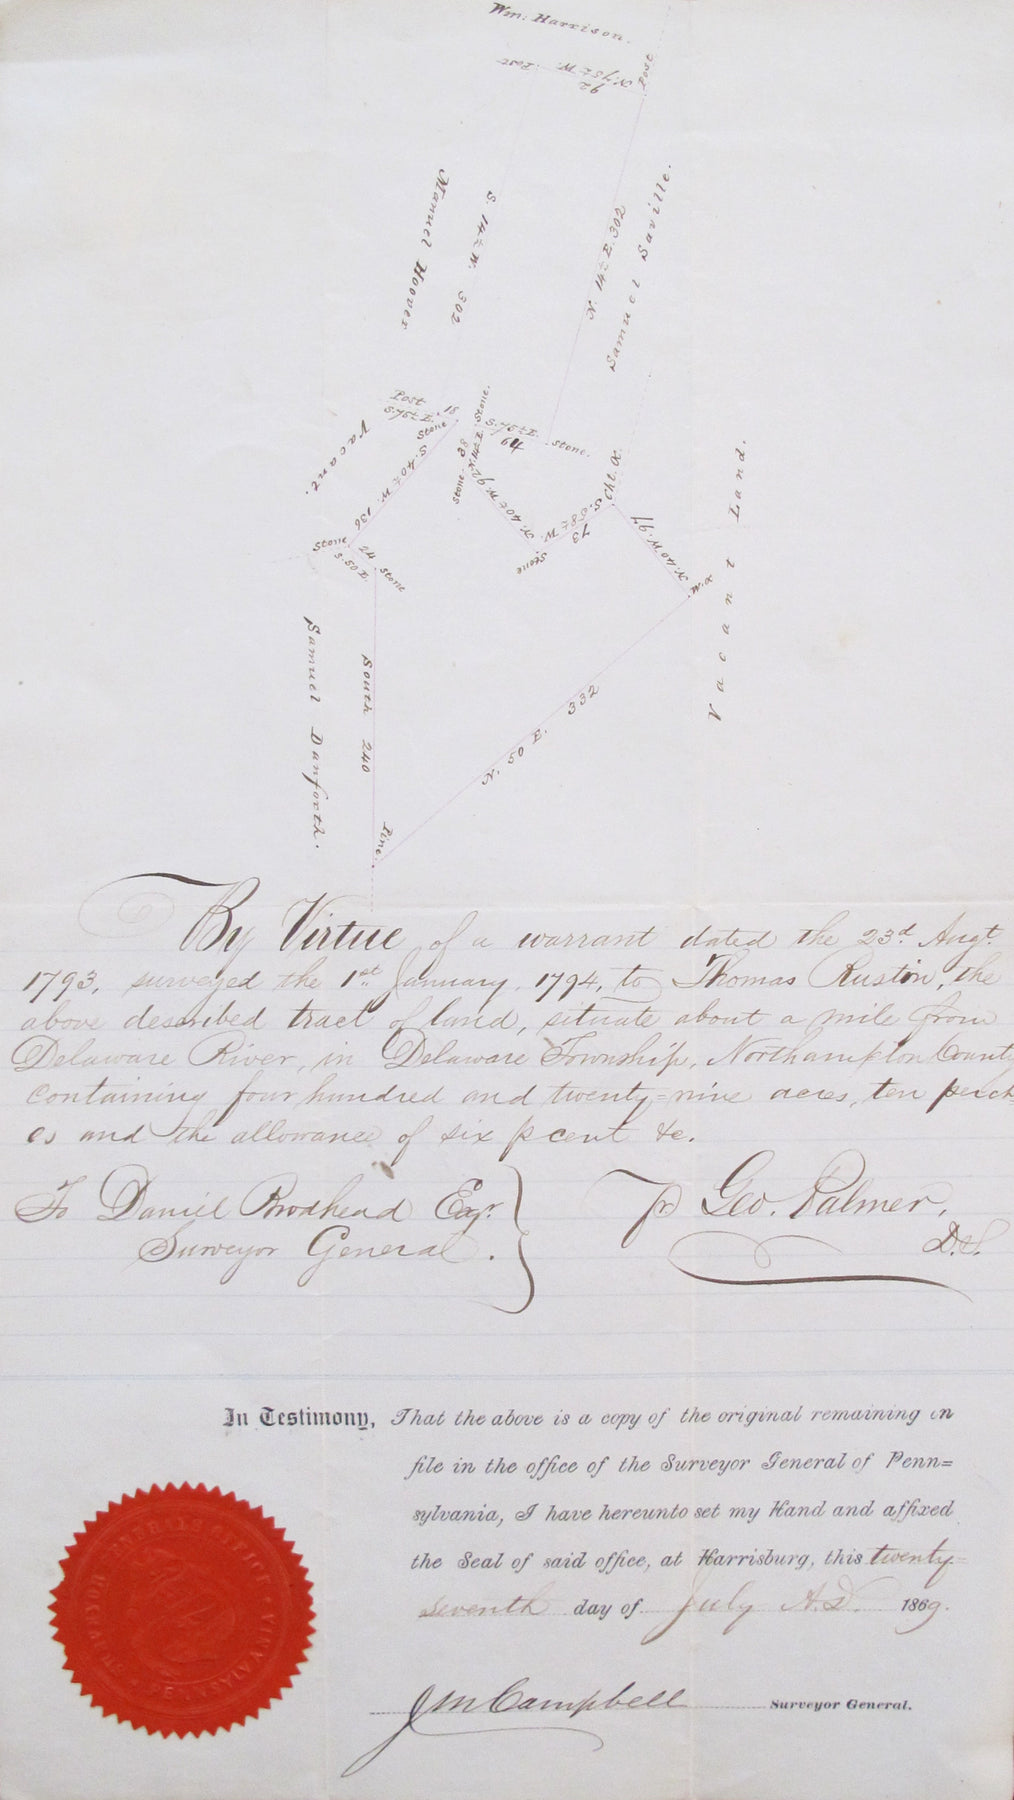 Wm: Harrison.
Post
N. 75½ W.
92
Post
Manuel Hoover
S. 14½ W. 302
N. 14½ E. 302
Samuel Saville.
Post
S. 75½ E. 18
Stone
Vacant.
S. 40½ W. 136
Stone.
N. 14½ E.
88
Stone.
S. 75½ E.
64
Stone.
N. 40½ W. 92
Stone
S. 58½ W.
73
Cht. O.
N. 40 W. 97
W. O
Vacant Land.
Stone
24
S. 50 E.
Stone
Samuel Danforth.
South 240
N. 50 E. 332
Pine.
By Virtue of a warrant dated the 23d. Augt.
1793, surveyed the 1st. January, 1794, to Thomas Ruston, the
above described tract of land, situate about a mile from
Delaware River, in Delaware Township, Northampton County
containing four hundred and twenty=nine acres, ten perch=
es and the allowance of six p cent &c.
To Daniel Brodhead Esqr.
Surveyor General.
pr Geo. Palmer,
D.S.
In Testimony, That the above is a copy of the original remaining on
file in the office of the Surveyor General of Penn=
sylvania, I have hereunto set my Hand and affixed
the Seal of said office, at Harrisburg, this twenty=
seventh day of July A.D. 1869.
J M Campbell Surveyor General.